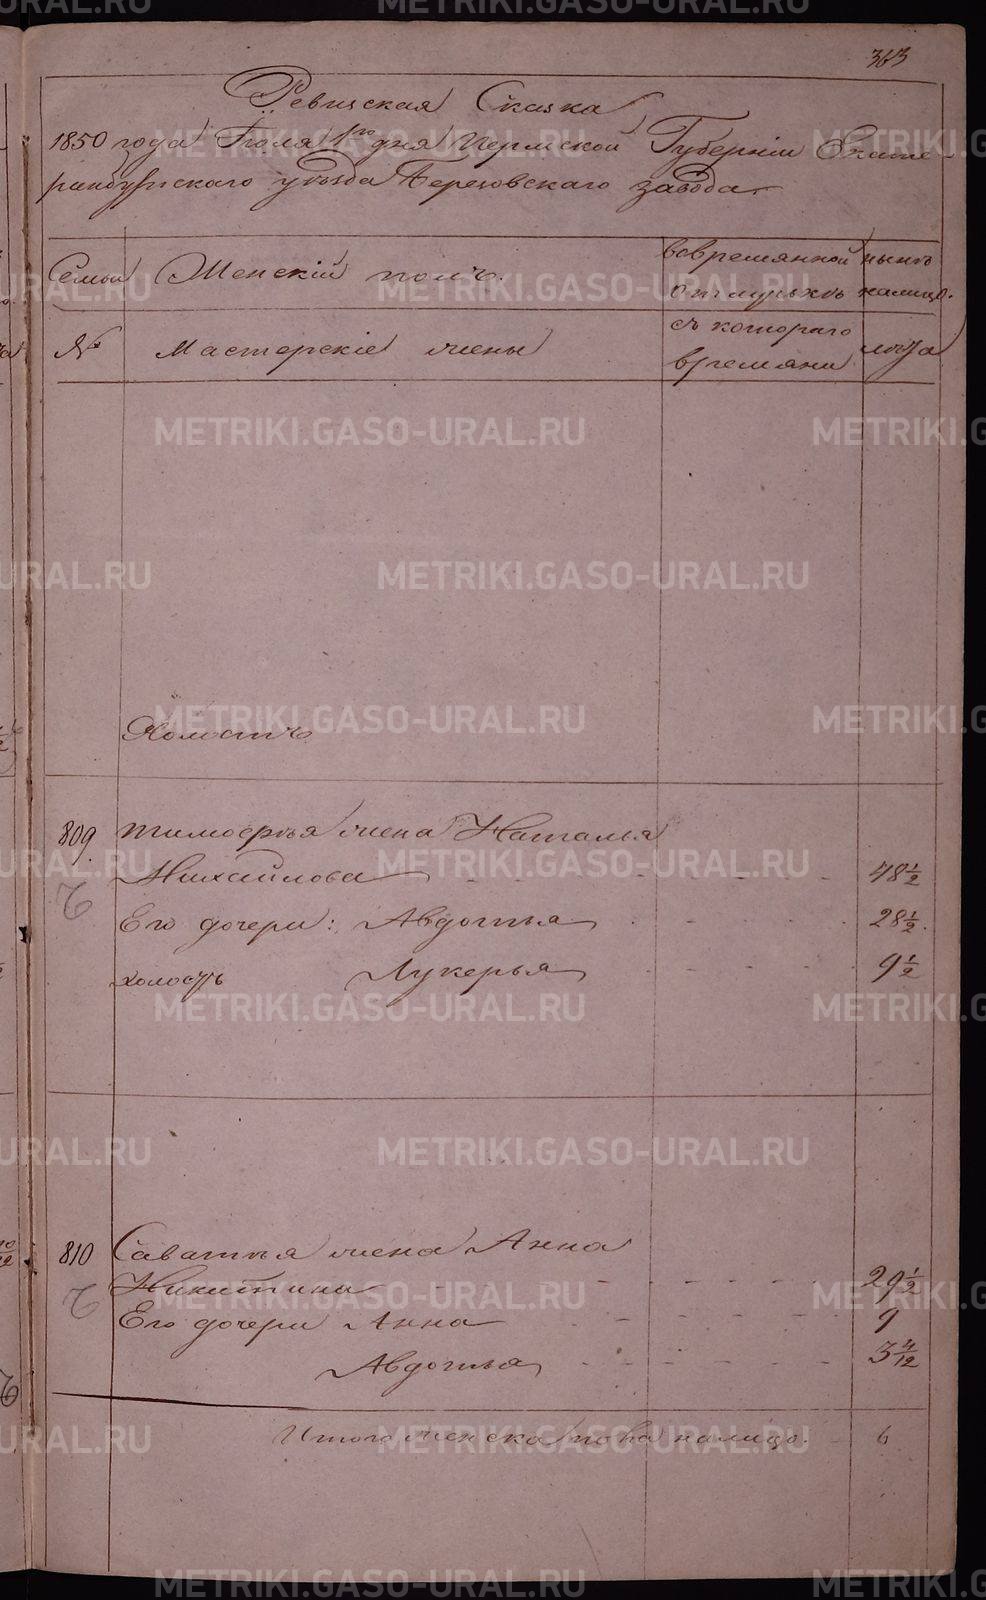 363
Ревизская Сказка
1850 года Іюля 1го дня Пермской Губерніи Екате-
ринбургскаго уѣзда Березовскаго завода
Семьи Женскій полъ. вовремянной нынѣ
отлучкѣ налицо.
№ Мастерскіе жены съ котораго лѣта
времяни
Холостъ
809. Тимофѣя жена Наталья
Михайлова 48 1/2
Его дочери: Авдотья 28 1/2.
холостъ Лукерья 9 1/2
810 Саватѣя жена Анна
Никитина 29 1/2
Его дочери Анна 9
Авдотья 3 4/12
Итого женска пола налицо. 6
METRIKI.GASO-URAL.RU